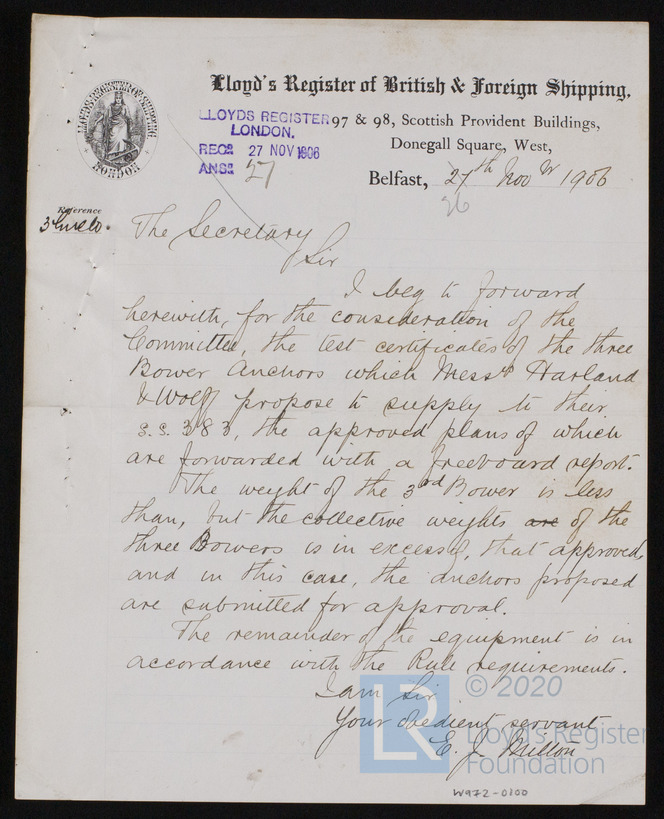 Lloyd's Register of British & Foreign Shipping,
LLOYDS REGISTER
LONDON.
RECD 27 NOV 1906
ANSD 27
97 & 98, Scottish Provident Buildings,
Donegall Square, West,
Belfast, 27th Novr 1906
26
LONDON
Reference
The Secretary
Sir
I beg to forward
herewith, for the consideration of the
Committee, the test certificates of the three
Bower Anchors which Messrs Harland
& Wolff propose to supply to their
S.S. 383, the approved plans of which
are forwarded with a freeboard report.
The weight of the 3rd Bower is less
than, but the collective weights are of the
three Bowers is in excess of, that approved,
and in this case, the anchors proposed
are submitted for approval.
The remainder of the equipment is in
accordance with the Rule requirements.
I am Sir
Your obedient servant
E. J. Milton
LR
© 2020
Lloyd's Register
Foundation
W972-0100